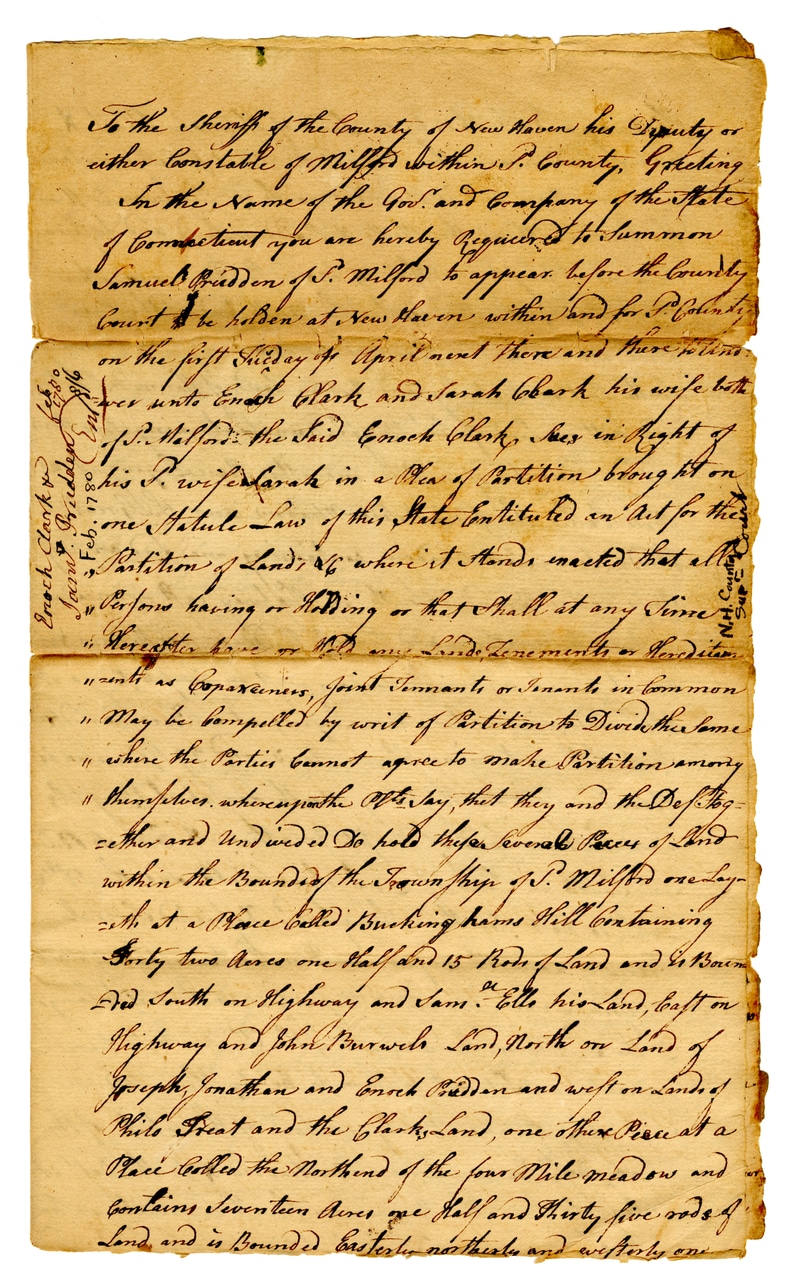 To the Sheriff of the County of New Haven his Deputy or
either Constable of Milford within Sd. County, Greeting
In the Name of the Govr. and Company of the State
of Connecticut you are hereby Required to Summon
Samuel Prudden of Sd. Milford to appear before the County
Court to be holden at New Haven within and for Sd. County
on the first Tuesday of April next there and then to Ans-
wer unto Enoch Clark and Sarah Clark his wife both
of Sd. Milford the Said Enoch Clark Sues in Right of
his Sd. wife Sarah in a Plea of Partition brought on
one Statute Law of this State Entituled an Act for the
" Partition of Lands &c where it Stands enacted that all
" Persons having or Holding or that Shall at any Time
" Hereafter have or Hold any Lands, Tenements or Hereditam-
" =ents as Coparceners, Joint Tennants or Tenants in Common
" May be Compelled by writ of Partition to Divide the Same
" where the Parties Cannot agree to make Partition among
" themselves. whereupon the Plts Say, that they and the Deft Tog=
=ether and Undivided Do hold these Several Peices of Land
within the Bounds of the Township of Sd. Milford one Lay=
=eth at a Place Called Buckinghams Hill Containing
Forty two Acres one Half and 15 Rods of Land and is Boun=
=ded South on Highway and Saml. Ells his Land, East on
Highway and John Burwels Land, North on Land of
Joseph, Jonathan and Enoch Prudden and west on Lands of
Philo Treat and the Clarks Land, one other Peice at a
Place Called the Northend of the four Mile meadow and
Contains Seventeen Acres one Half and Thirty five rods of
Land and is Bounded Easterly northerly and westerly one
Enoch Clark &
Saml. Prudden
Feb. 1780
Feb
1780
N.H. County
Court